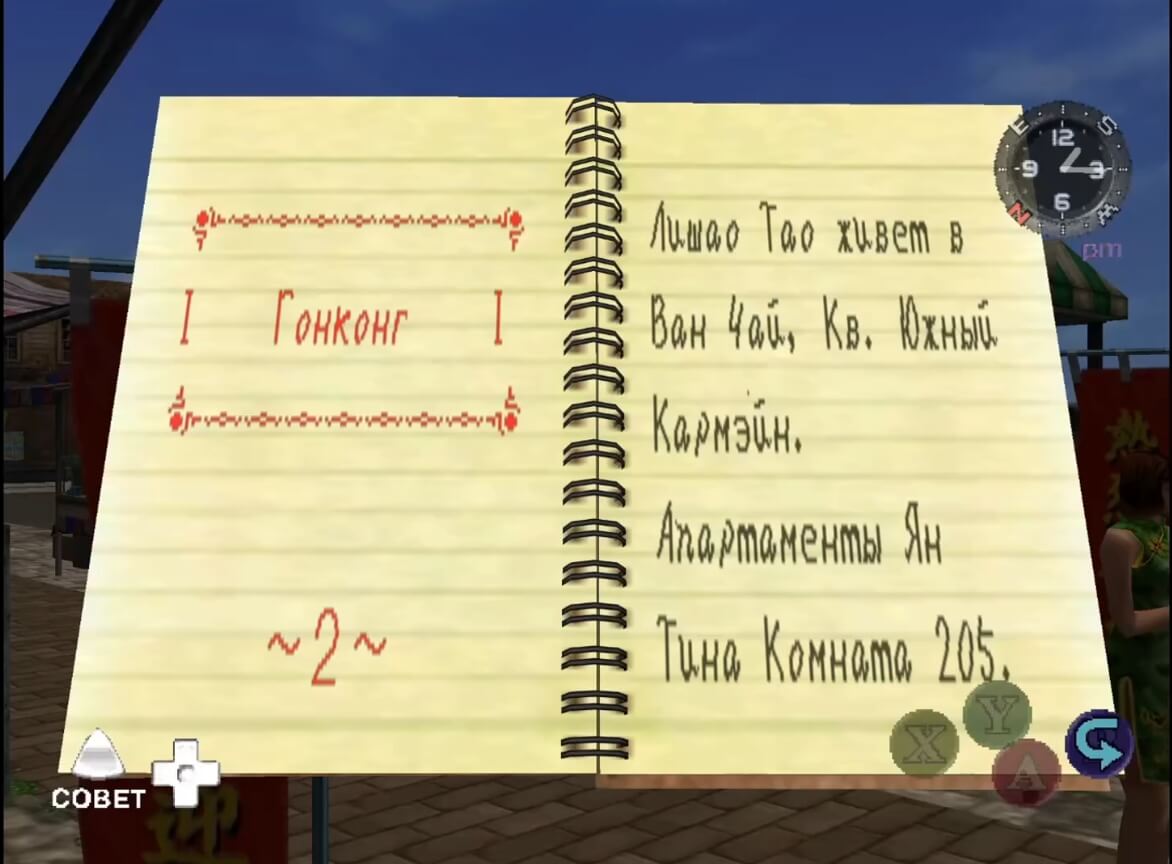 Гонконг
~2~
Лишао Тао живет в
Ван Чай, Кв. Южный
Кармэйн.
Апартаменты Ян
Тина Комната 205.
E
S
N
W
12
3
6
9
pm
СОВЕТ
X
Y
A
迎